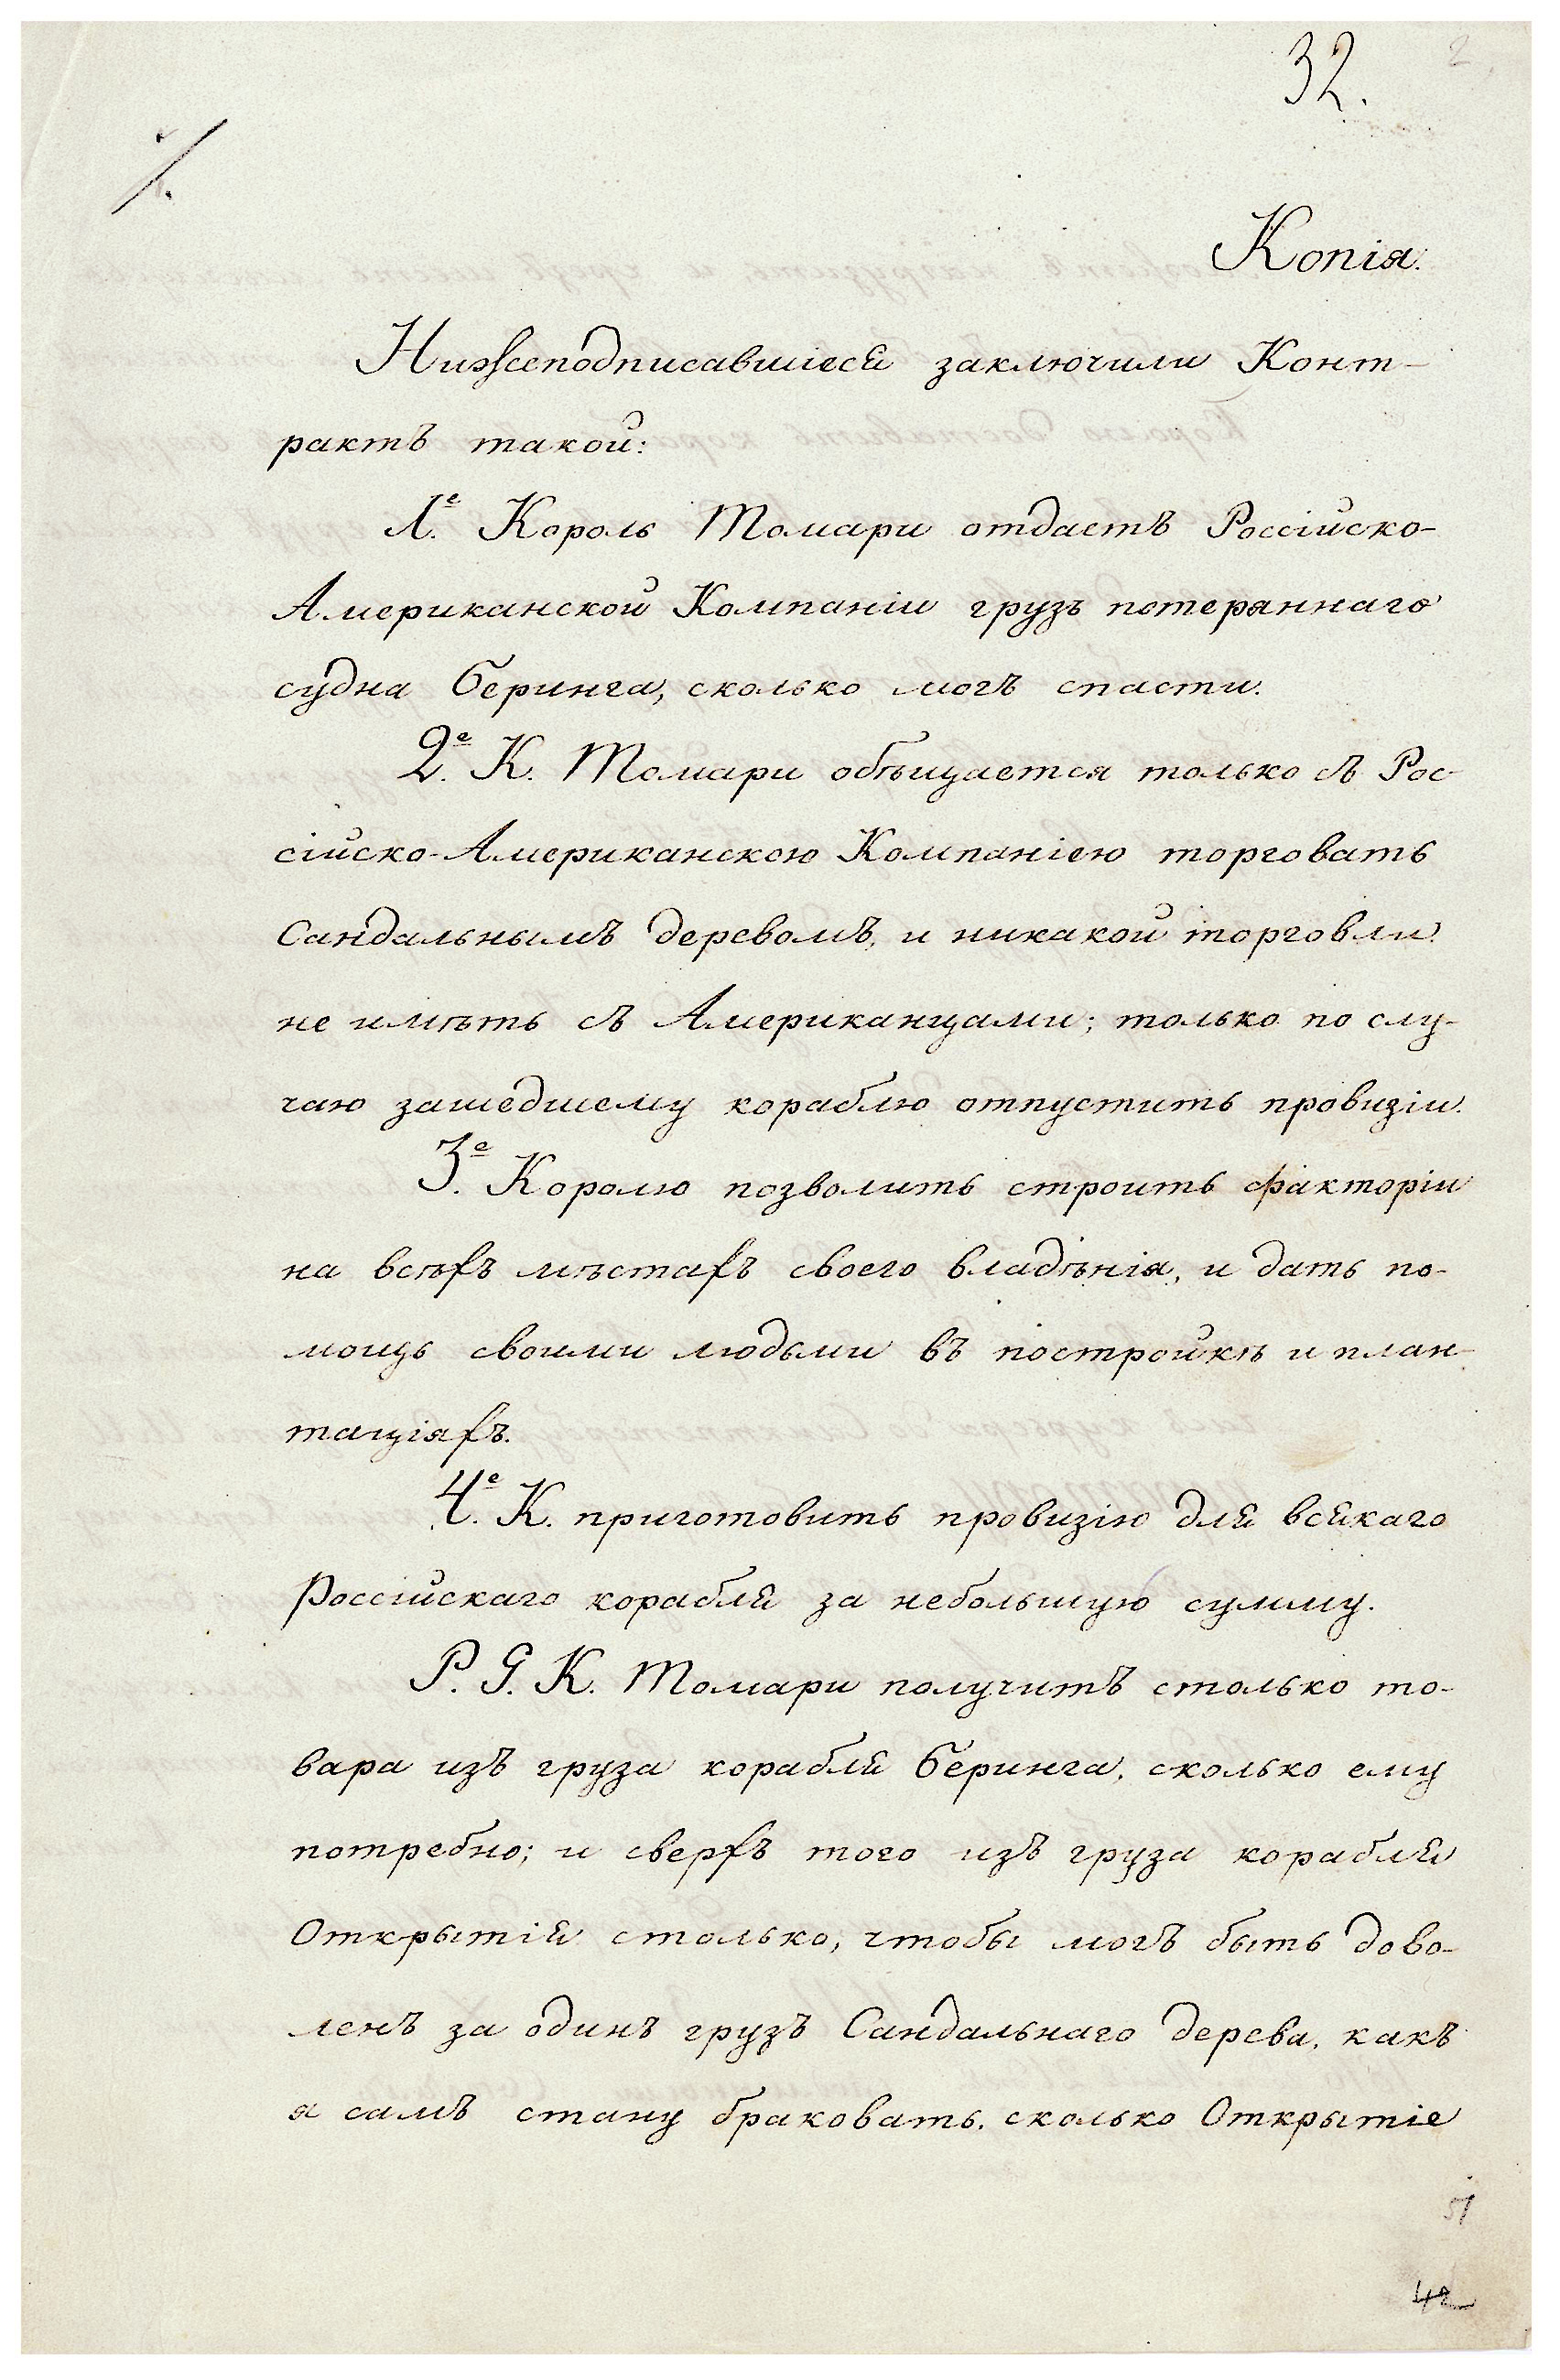 32.
2
Копія.
Нижеподписавшіеся заключили Конт-
рактъ такой:
1е. Король Томари отдастъ Россійско-
Американской Компаніи грузъ потеряннаго
судна Беринга, сколько могъ спасти.
2е. К. Томари обѣщается только съ Рос-
сійско-Американскою Компаніею торговать
Сандальнымъ деревомъ, и никакой торговли
не имѣть съ Американцами; только по слу-
чаю зашедшему кораблю отпустить провизіи.
3е. Королю позволить строить факторіи
на всѣхъ мѣстахъ своего владѣнія, и дать по-
мощь своими людьми въ постройкѣ и план-
таціяхъ.
4е. К. приготовить провизію для всякаго
Россійскаго корабля за небольшую сумму.
P. S. К. Томари получитъ столько то-
вара изъ груза корабля Беринга, сколько ему
потребно; и сверхъ того изъ груза корабля
Открытія столько, чтобы могъ быть дово-
ленъ за одинъ грузъ Сандальнаго дерева, какъ
я самъ стану браковать, сколько Открытіе
51
42